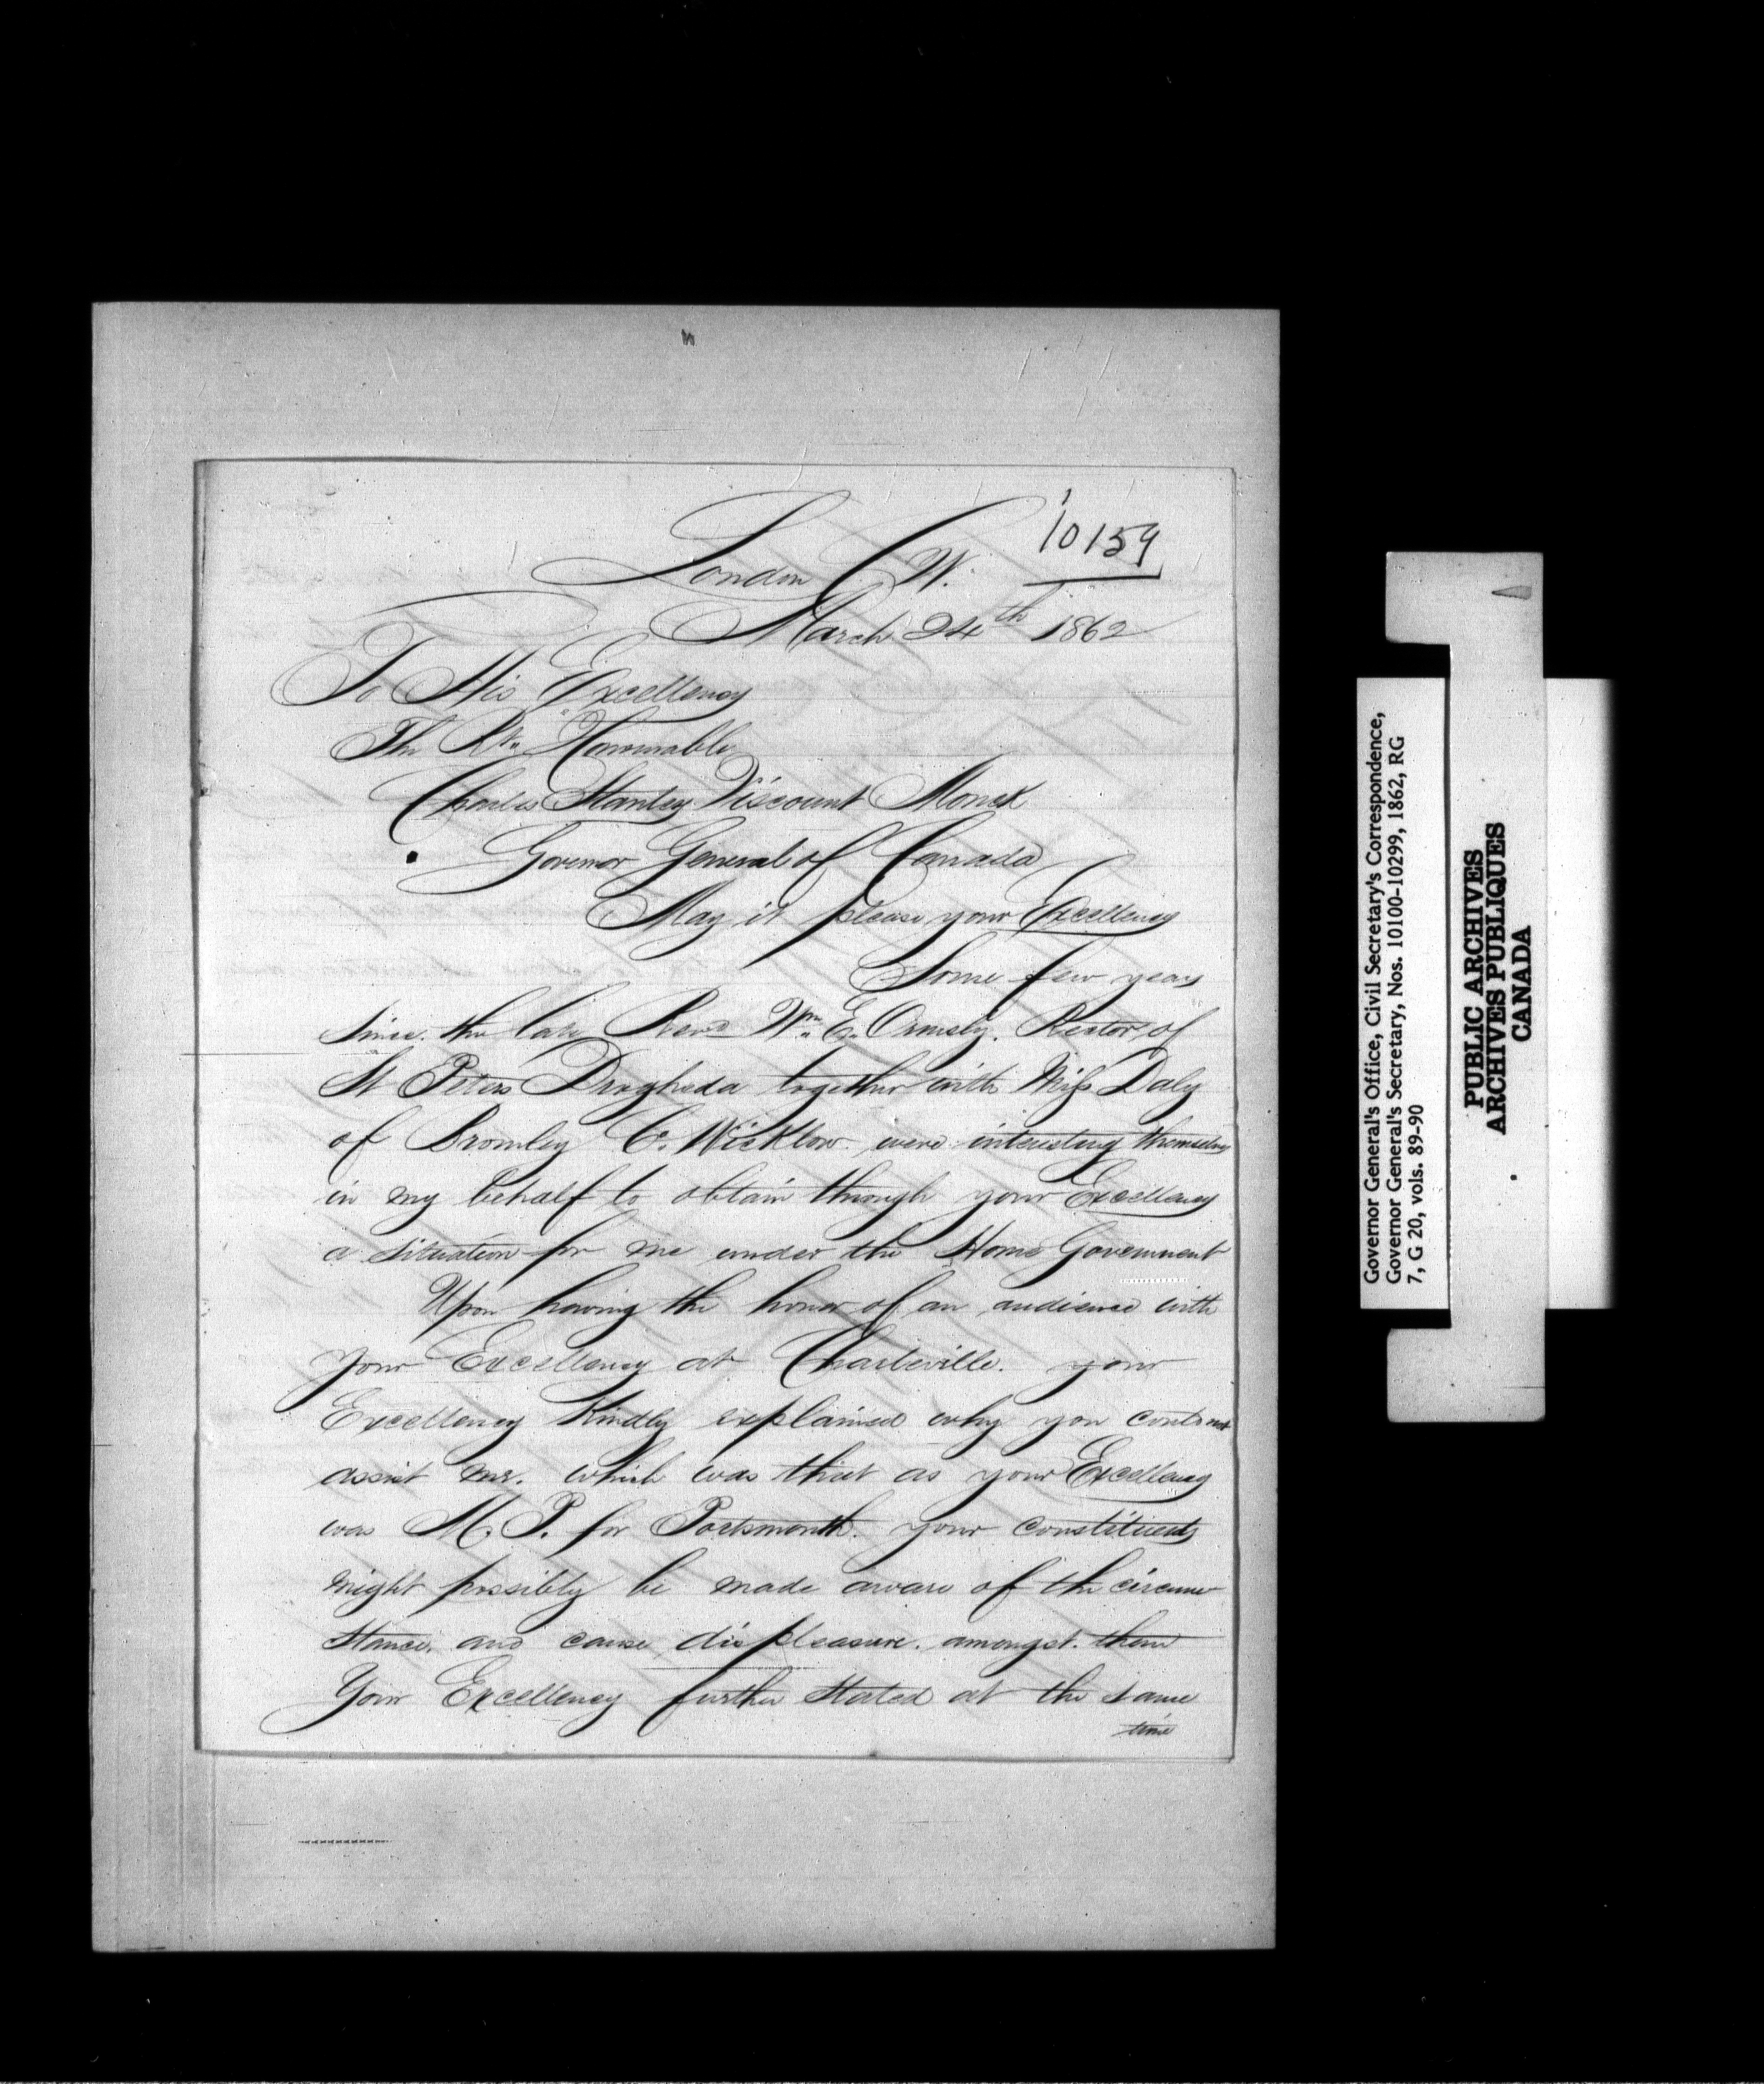 10159
London C W.
March 24th 1862
To His Excellency
The Rt. Honourable
Charles Stanley Viscount Monck
Governor General of Canada
May it please your Excellency
Some few years
since. the late Revd Wm. E. Ormsby. Rector of
St Peters Drogheda together with Miss Daly
of Bromley Co. Wicklow were interesting themselves
in my behalf to obtain through your Excellency
a situation for me under the Home Government
Upon having the honor of an audience with
your Excellency at Charleville. your
Excellency Kindly explained why you could not
assist me. which was that as your Excellency
was M. P. for Portsmouth. your constituents
might possibly be made aware of the circum
stance. and cause displeasure. amongst. them
Your Excellency further stated at the same
time
Governor General's Office, Civil Secretary's Correspondence,
Governor General's Secretary, Nos. 10100-10299, 1862, RG
7, G 20, vols. 89-90
PUBLIC ARCHIVES
ARCHIVES PUBLIQUES
CANADA